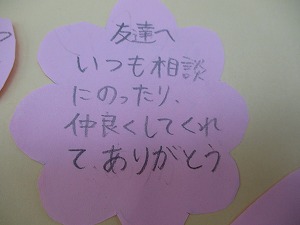 友達へ
いつも相談
にのったり、
仲良くしてくれ
て、ありがとう